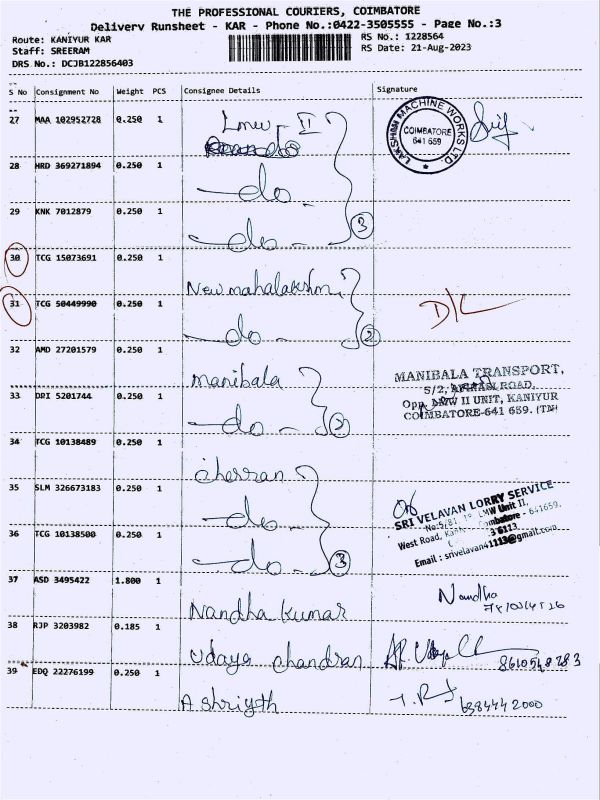 THE PROFESSIONAL COURIERS, COIMBATORE
Delivery Runsheet - KAR - Phone No.:0422-3505555 - Page No.:3
Route: KANIYUR KAR RS No.: 1228564
Staff: SREERAM RS Date: 21-Aug-2023
DRS No.: DCJB122856403
S No Consignment No Weight PCS Consignee Details Signature
27 MAA 102952728 0.250 1 Lmw - II
LAKSHMI MACHINE WORKS LTD.
COIMBATORE
641 659
28 HRD 369271894 0.250 1 - do -
29 KNK 7012879 0.250 1 - do - 3
30 TCG 15073691 0.250 1 New mahalakshmi
31 TCG 50449990 0.250 1 - do - 2 D/L
32 AMD 27201579 0.250 1 manibala
MANIBALA TRANSPORT,
S/2, ROAD,
Opp. LMW II UNIT, KANIYUR
COIMBATORE-641 659. (TN)
33 DPI 5201744 0.250 1 - do - 2
34 TCG 10138489 0.250 1 cherran
35 SLM 326673183 0.250 1 - do -
SRI VELAVAN LORRY SERVICE
No:5/81, LMW Unit II,
West Road, Coimbatore - 641659.
Email : srivelavan41113@gmail.com
36 TCG 10138500 0.250 1 - do - 3
37 ASD 3495422 1.800 1 Nandha kumar Nandha
38 RJP 3203982 0.185 1 Udaya chandran 8610548783
39 EDQ 22276199 0.250 1 A shriyth 6384442000